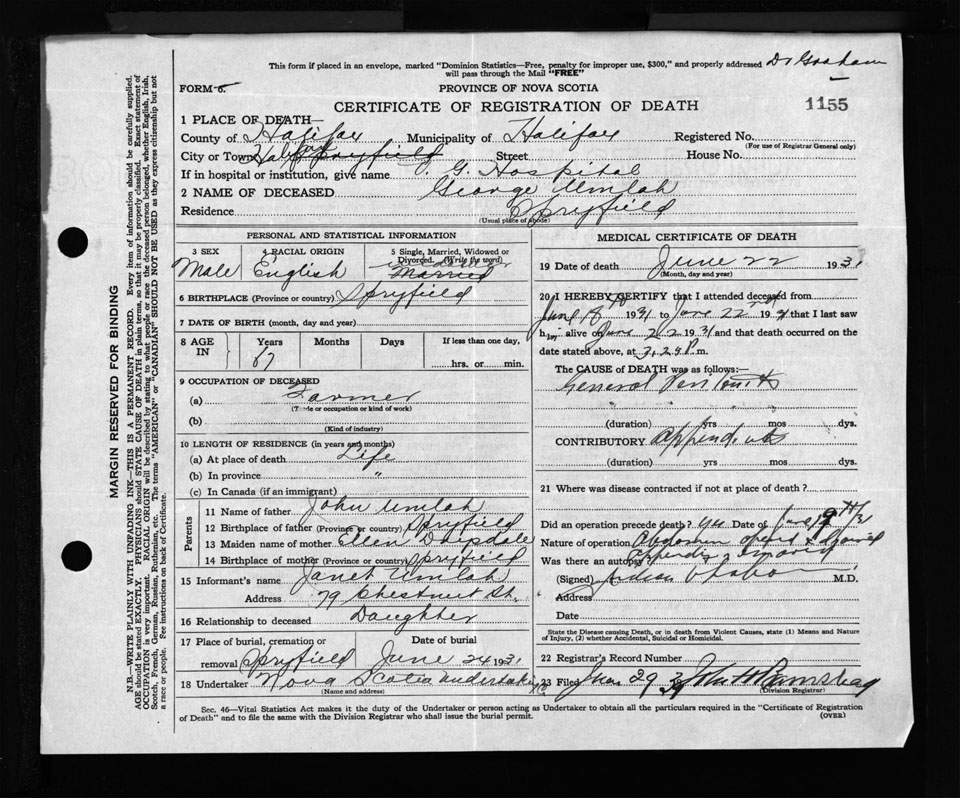 This form if placed in an envelope, marked "Dominion Statistics—Free, penalty for improper use, $300," and properly addressed Dr Graham
will pass through the Mail "FREE"
FORM 6.
PROVINCE OF NOVA SCOTIA
CERTIFICATE OF REGISTRATION OF DEATH
1155
1 PLACE OF DEATH—
County of Halifax Municipality of Halifax Registered No.
(For use of Registrar General only)
City or Town Spryfield Street House No.
If in hospital or institution, give name V. G. Hospital
2 NAME OF DECEASED George Umlah
Residence Spryfield
(Usual place of abode)
PERSONAL AND STATISTICAL INFORMATION
3 SEX 4 RACIAL ORIGIN 5 Single, Married, Widowed or Divorced. (Write the word)
Male English Married
6 BIRTHPLACE (Province or country) Spryfield
7 DATE OF BIRTH (month, day and year)
8 AGE IN Years Months Days If less than one day,
67 hrs. or min.
9 OCCUPATION OF DECEASED
(a) Farmer
(Trade or occupation or kind of work)
(b)
(Kind of industry)
10 LENGTH OF RESIDENCE (in years and months)
(a) At place of death Life
(b) In province "
(c) In Canada (if an immigrant)
Parents
11 Name of father John Umlah
12 Birthplace of father (Province or country) Spryfield
13 Maiden name of mother Ellen Drysdale
14 Birthplace of mother (Province or country) Spryfield
15 Informant's name Janet Umlah
Address 79 Chestnut St.
16 Relationship to deceased Daughter
17 Place of burial, cremation or Date of burial
removal Spryfield June 24 1931
18 Undertaker Nova Scotia Undertaking
(Name and address)
MEDICAL CERTIFICATE OF DEATH
19 Date of death June 22 1931
(Month, day and year)
20 I HEREBY CERTIFY that I attended deceased from
June 18 1931 to June 22 1931 that I last saw
him alive on June 22 1931 and that death occurred on
date stated above, at 3.29 P. m.
The CAUSE of DEATH was as follows:—
General Peritonitis
(duration) yrs mos dys.
CONTRIBUTORY Appendicitis
(duration) yrs mos dys.
21 Where was disease contracted if not at place of death?
Did an operation precede death? yes Date of June 19th/31
Nature of operation Abdomen opened & drained
Was there an autopsy? appendix removed
(Signed) M.D.
Address
Date
State the Disease causing Death, or in death from Violent Causes, state (1) Means and Nature
of Injury, (2) whether Accidental, Suicidal or Homicidal.
22 Registrar's Record Number
23 Filed June 29 31
(Division Registrar)
Sec. 46—Vital Statistics Act makes it the duty of the Undertaker or person acting as Undertaker to obtain all the particulars required in the "Certificate of Registration
of Death" and to file the same with the Division Registrar who shall issue the burial permit.
(OVER)
MARGIN RESERVED FOR BINDING
N.B.—WRITE PLAINLY WITH UNFADING INK—THIS IS A PERMANENT RECORD. Every item of information should be carefully supplied.
AGE should be stated EXACTLY. PHYSICIANS should STATE CAUSE OF DEATH in plain terms, so that it may be properly classified. Exact statement of
OCCUPATION is very important. RACIAL ORIGIN will be described by stating to what people or race the deceased person belonged, whether English, Irish,
Scotch, French, German, Russian, Ruthenian, etc. The terms "AMERICAN" or "CANADIAN" SHOULD NOT BE USED as they express citizenship but not
a race or people. See instructions on back of Certificate.